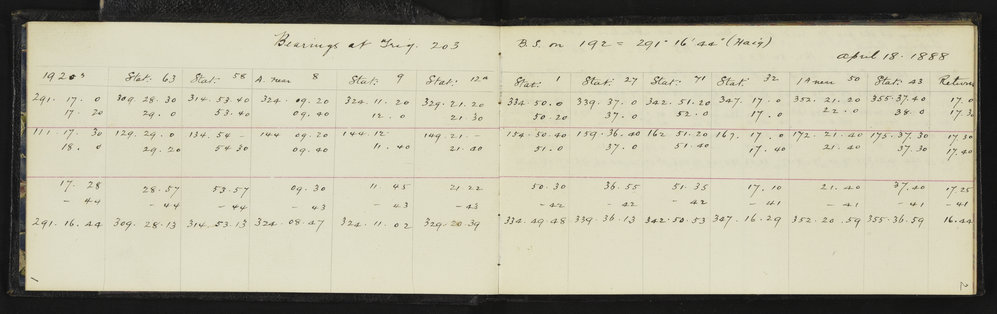 Bearings at Trig. 203 B.S. on 192 = 291° 16' 44" (Haig)
April 18. 1888
Stat. 63 Stat. 58 A. near 8 Stat. 9 Stat. 12a Stat. 1 Stat. 27 Stat. 71 Stat. 32 1A near 50 Stat. 43 Return
291. 17. 0 309. 28. 30 314. 53. 40 324. 09. 20 324. 11. 20 329. 21. 20 334. 50. 0 339. 37. 0 342. 51. 20 347. 17. 0 352. 21. 20 355. 37. 40 17. 0
17. 20 29. 0 53. 40 09. 40 12. 0 21. 30 50. 20 37. 0 52. 0 17. 0 22. 0 38. 0
111. 17. 30 129. 29. 0 134. 54 - 144 09. 20 144. 12 149. 21 - 154. 50. 40 159. 36. 40 162 51. 20 167. 17. 0 172. 21. 40 175. 37. 30 17. 30
18. 0 29. 20 54 30 09. 40 11. 40 21. 40 51. 0 37. 0 51. 40 17. 40 21. 40 37. 30 17. 40
17. 28 28. 57 53. 57 09. 30 11. 45 21. 22 50. 30 36. 55 51. 35 17. 10 21. 40 37. 40 17. 25
- 44 - 44 - 44 - 43 - 43 - 43 - 42 - 42 - 42 - 41 - 41 - 41 - 41
291. 16. 44 309. 28. 13 314. 53. 13 324. 08. 47 324. 11. 02 329. 20. 39 334. 49. 48 339. 36. 13 342. 50. 53 347. 16. 29 352. 20. 59 355. 36. 59 16. 44
1 2